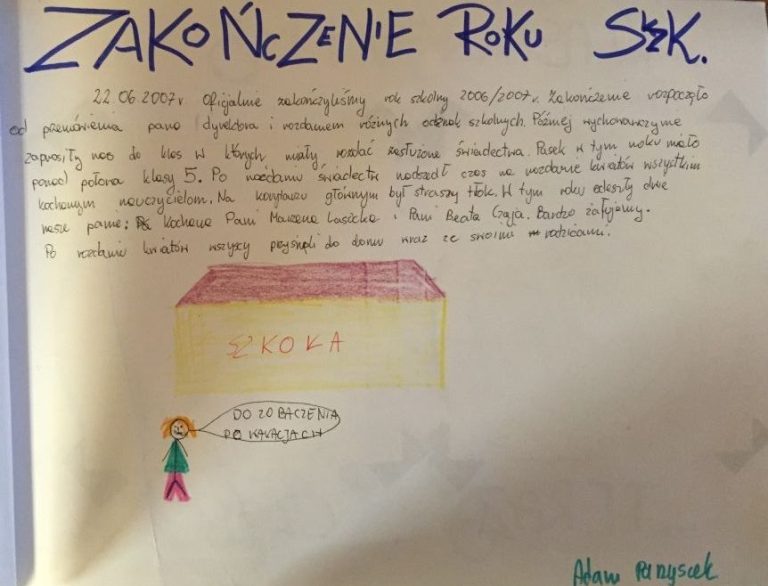 ZAKOŃCZENIE ROKU SZK.
22.06.2007r. Oficjalnie zakończyliśmy rok szkolny 2006/2007r. Zakończenie rozpoczęto
od przemówienia pana dyrektora i rozdaniem różnych odznak szkolnych. Później wychowawczynie
zaprosiły nas do klas w których miały rozdać zasłużone świadectwa. Pasek w tym roku miało
ponad połowa klasy 5. Po rozdaniu świadectw nadszedł czas na rozdanie kwiatów wszystkim
kochanym nauczycielom. Na korytarzu głównym był straszy tłok. W tym roku odeszły dwie
nasze panie: Kochana Pani Marzena Lasicka i Pani Beata Czaja. Bardzo żałujemy.
Po rozdaniu kwiatów wszyscy poszli do domu wraz ze swoimi rodzicami.
SZKOŁA
DO ZOBACZENIA
PO WAKACJACH
Adam